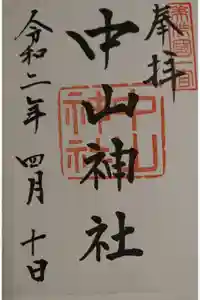 奉拝
美作國一宮
中山神社
中山神社
令和二年 四月 十日